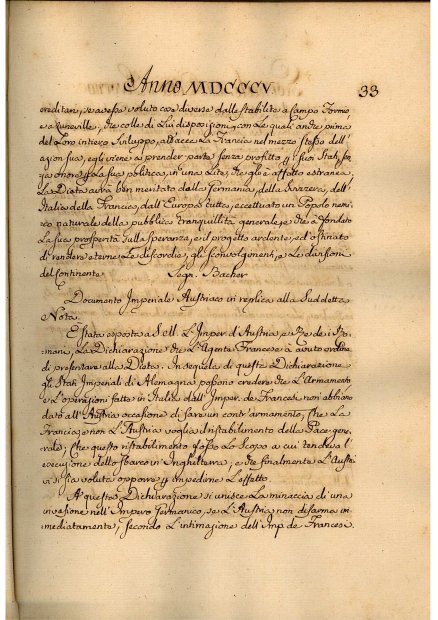 Anno MDCCCV. 33
ereditarj, se avesse voluto cose diverse dalle stabilite a Campo Formio,
e a Luneville, che colle di Lui disposizioni, con Le quali andre prima
del Loro intiero sviluppo, attacca La Francia nel mezzo stesso dell'
azion sua, egli viene a prender parte senza profitto p. i suoi Stati, sen
za onore p. La sua politica, in una Lite, che gli è affatto estranea,
La Dieta avrà ben meritato dalla Germania, della Svizzera, dell'
Italia, della Francia, dall'Europa tutta, eccettuato un Popolo nemi
co naturale della pubblica tranquillità generale, e che à fondato
La sua prosperità sulla speranza, e il progetto ardente, ed ostinato
di rendere eterne Le discordie, gli sconvolgimenti, e Le divisioni
del Continente. Segn. Bacher
Documento Imperiale Austriaco in replica alla Suddetta
Nota.
E stata esposta a S. M. L'Imper. d'Austria, e Re de i Ro-
mani, La Dichiarazione che L'Agente Francese à avuto ordine
di presentare alla Dieta. In sequela di questa Dichiarazione
gli Stati Imperiali di Alemagna possono credere che L'Armamento
e L'operazioni fatte in Italia dall'Imper. de Francesi, non abbiano
dato all'Austria occasione di fare un contr'armamento, Che La
Francia, e non L'Austria voglia il ristabilimento della Pace gene-
rale; Che questo ristabilimento fosse Lo Scopo a cui tendeva l'
esecuzione dello sbarco in Inghilterra; e che finalmente L'Austria
vi si sia voluta opporre, p. impedirne L'effetto.
A questa Dichiarazione si unisce La minaccia di una
invasione nell'Impero Germanico, se L'Austria non disarma im-
mediatamente, secondo L'intimazione dell'Imp. de Francesi.